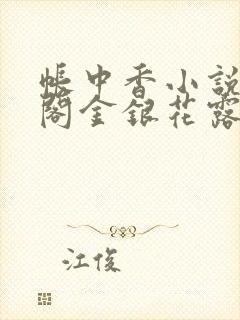 帐中香小說
閣金銀花露
江俊